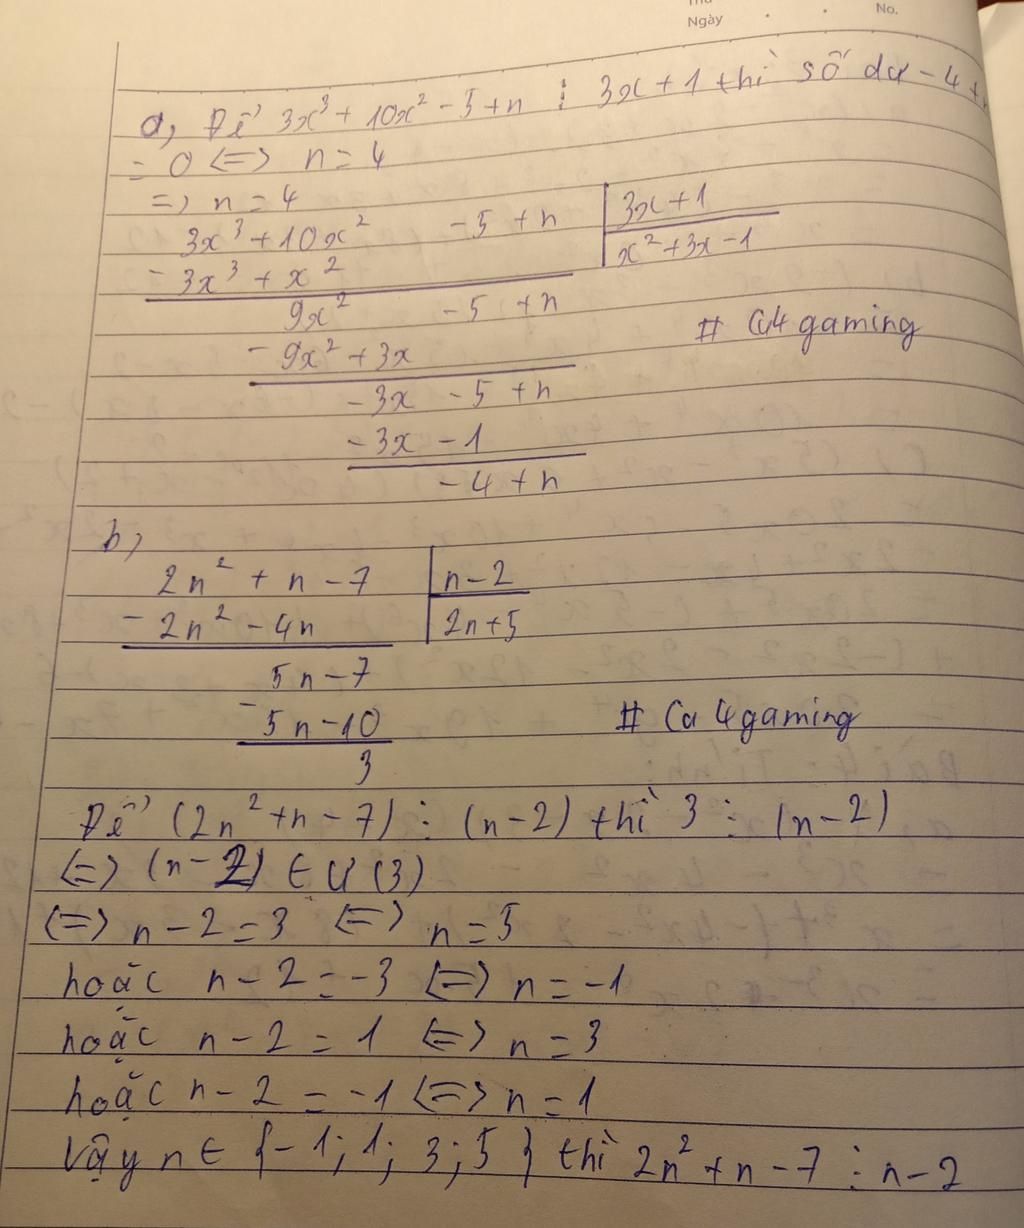 Thứ
Ngày
No.
a, Để 3x³ + 10x² - 5 + n ⋮ 3x + 1 thì số dư - 4 +
= 0 <=> n = 4
=> n = 4
3x³ + 10x² - 5 + n | 3x + 1
- 3x³ + x² | x² + 3x - 1
9x² - 5 + n
- 9x² + 3x
# Ca4 gaming
- 3x - 5 + n
- 3x - 1
- 4 + n
b,
2n² + n - 7 | n - 2
- 2n² - 4n | 2n + 5
5n - 7
- 5n - 10
# Ca 4gaming
3
Để (2n² + n - 7) ⋮ (n - 2) thì 3 ⋮ (n - 2)
<=> (n - 2) ∈ Ư (3)
<=> n - 2 = 3 <=> n = 5
hoặc n - 2 = -3 <=> n = -1
hoặc n - 2 = 1 <=> n = 3
hoặc n - 2 = -1 <=> n = 1
Vậy n ∈ {-1; 1; 3; 5} thì 2n² + n - 7 ⋮ n - 2